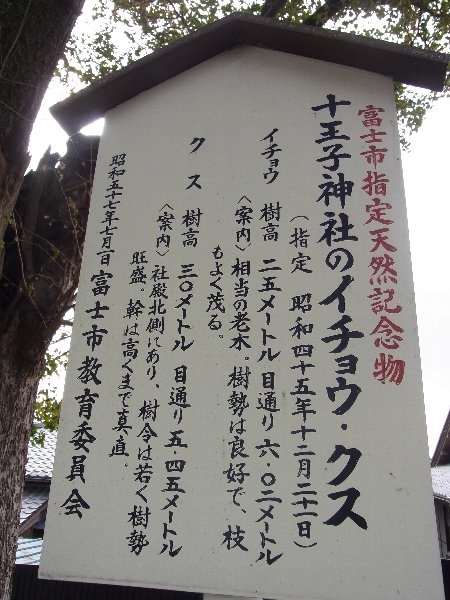 富士市指定天然記念物
十王子神社のイチョウ・クス
(指定 昭和四十五年十二月二十一日)
イチョウ 樹高 二五メートル 目通り 六・〇二メートル
〈案内〉相当の老木。樹勢は良好で、枝
もよく茂る。
クス 樹高 三〇メートル 目通り 五・四五メートル
〈案内〉社殿北側にあり、樹令は若く樹勢
旺盛、幹は高くまで真直、
昭和五十七年七月一日 富士市教育委員会